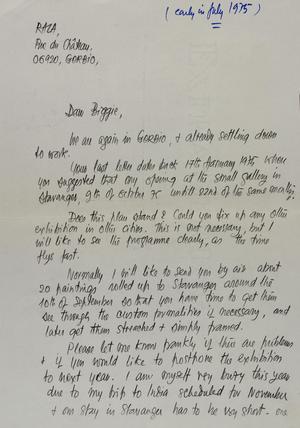 (early in July 1975)
RAZA,
Rue du Château,
06920, GORBIO,
Dear Biggie,
We are again in GORBIO, & already settling down
to work.
Your last letter dates back 17th February 1975 where
you suggested that my opening at the small gallery in
Stavanger, 9th of October 75 until 22nd of the same month.
Does this plan stand? Could you fix up any other
exhibition in other cities. This is not necessary, but I
will like to see the programme clearly, as the time
flys fast.
Normally I will like to send you by air about
20 paintings rolled up to Stavanger around the
10th of September so that you have time to get them
see through the custom formalities if necessary, and
later get them stretched & simply framed.
Please let me know frankly if there are problems
& if you would like to postpone the exhibition
to next year. I am myself very busy this year
due to my trip to India scheduled for November
& our stay in Stavanger has to be very short - one